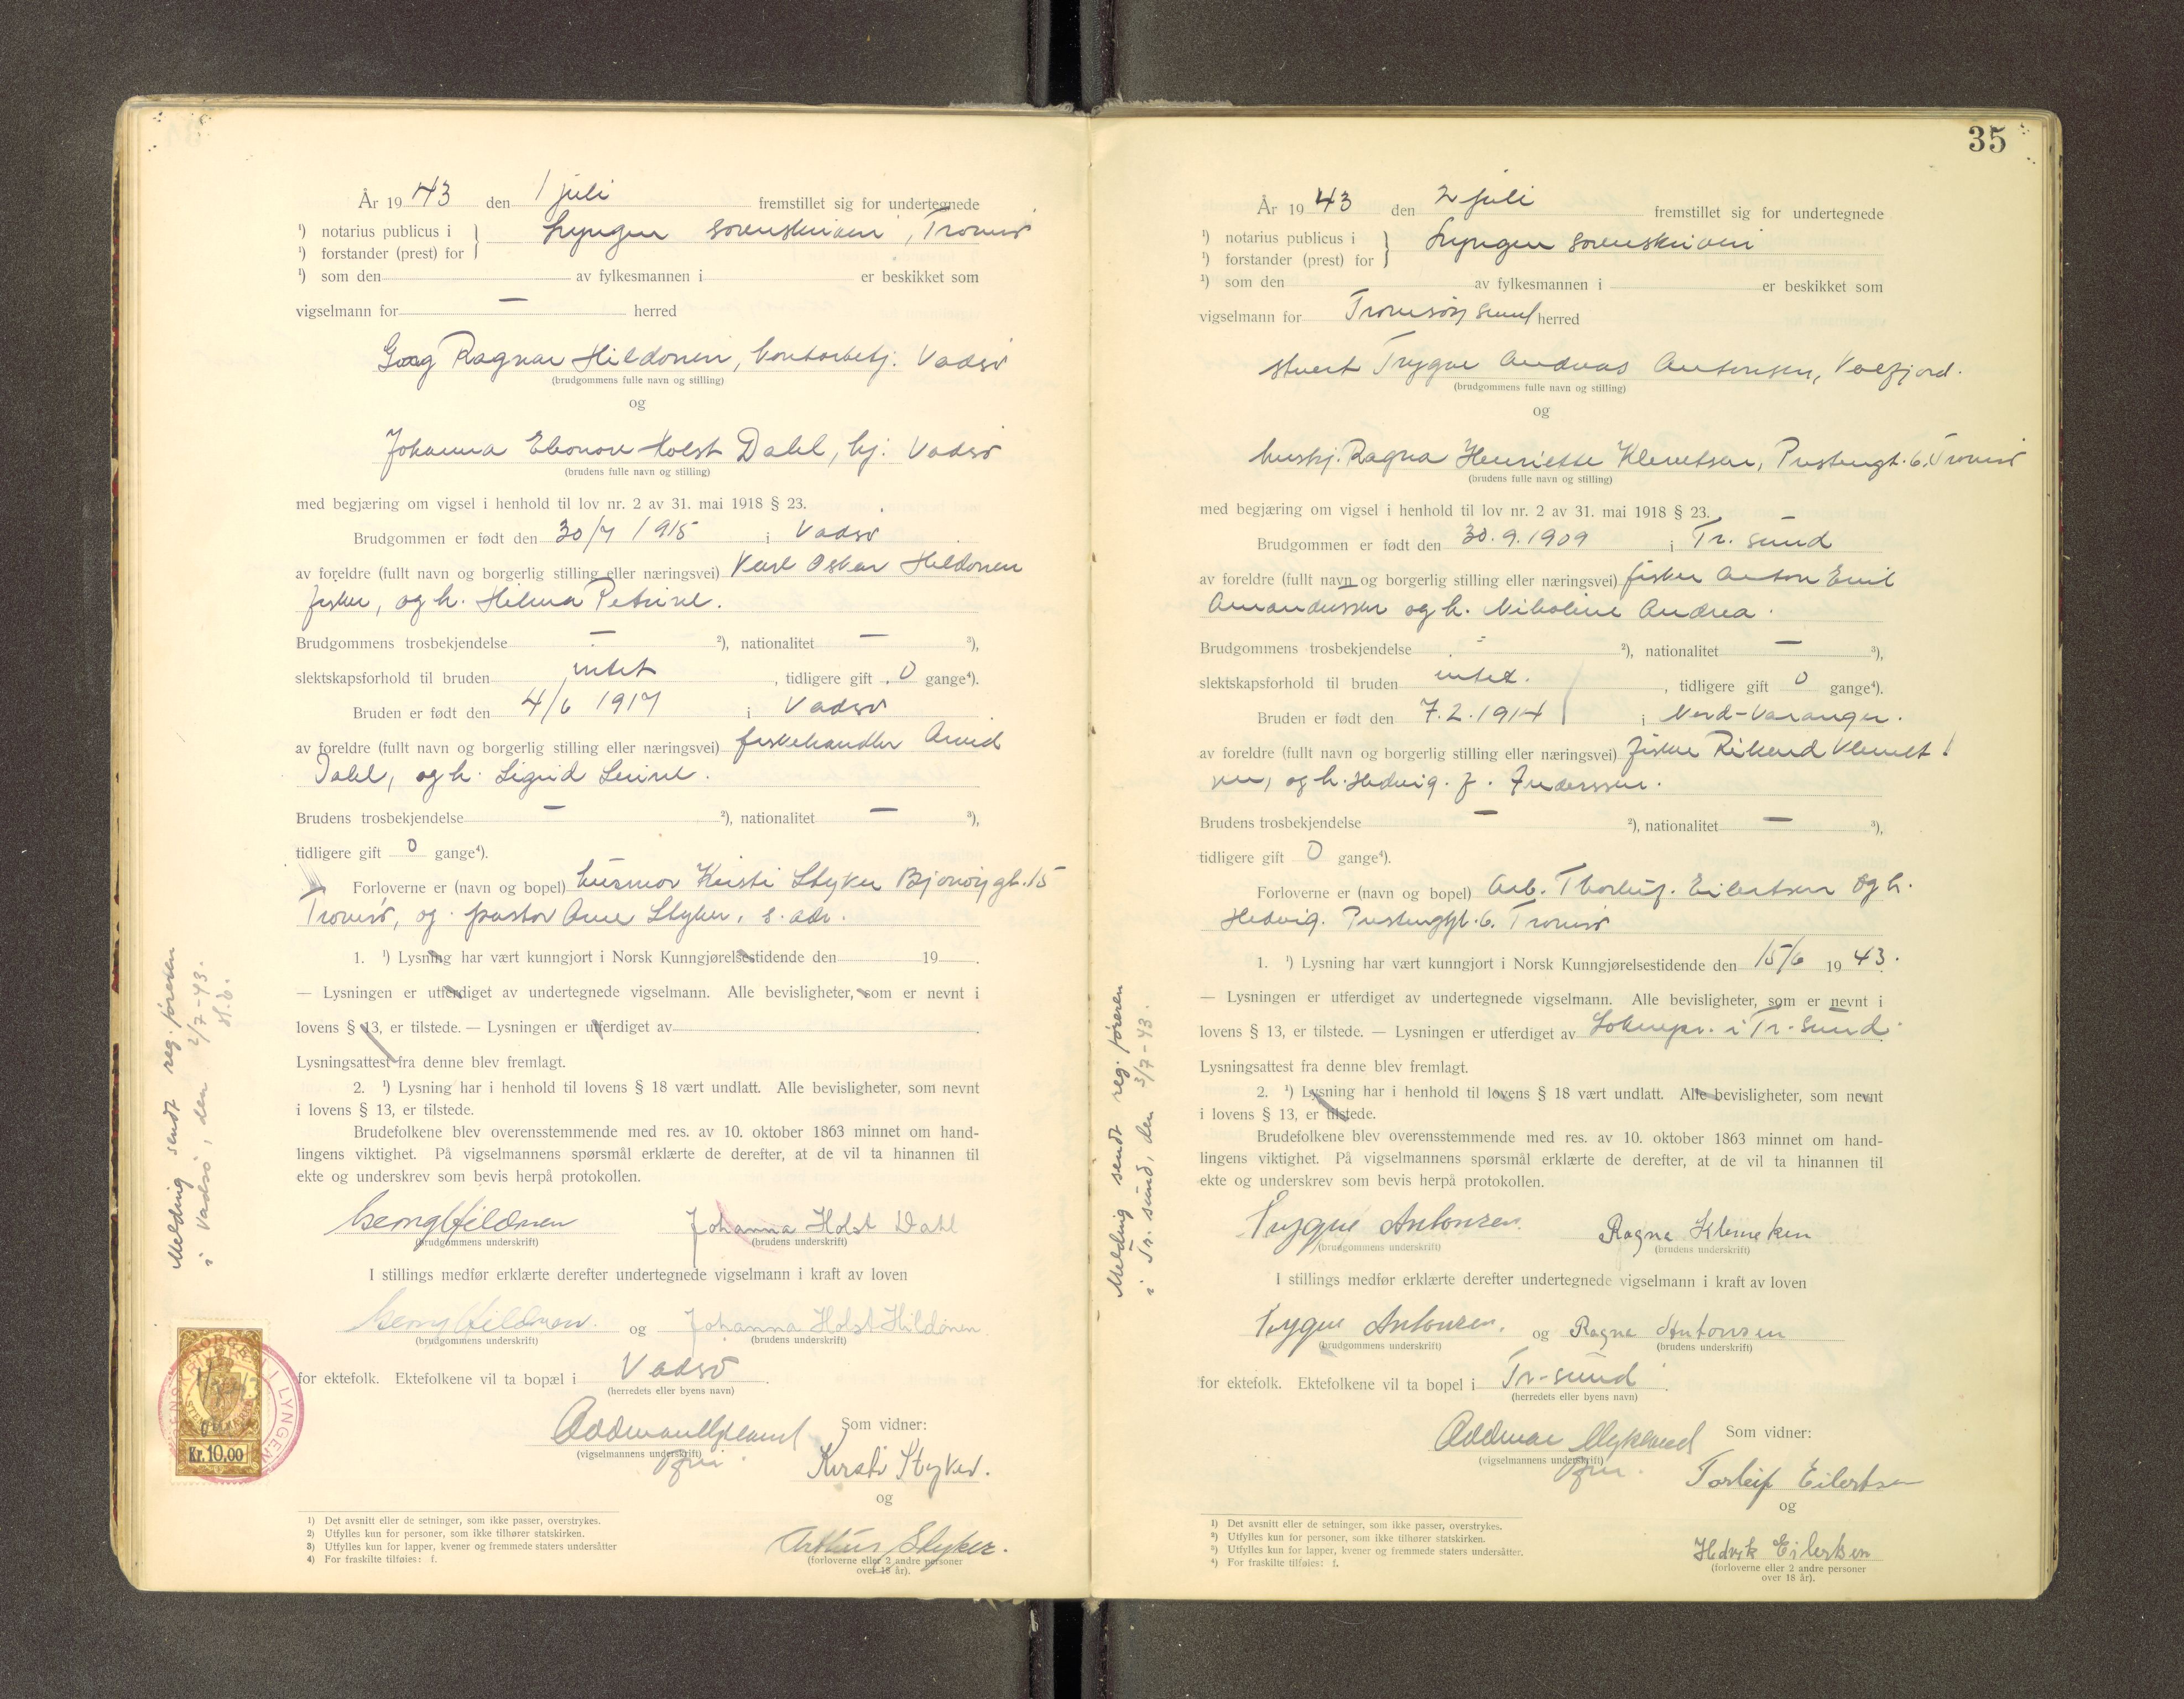 År 1943 den 1 juli fremstillet sig for undertegnede
¹) notarius publicus i } Lyngen sorenskriveri, Tromsö
¹) forstander (prest) for
¹) som den av fylkesmannen i er beskikket som
vigselmann for — herred
Georg Ragnar Hildonen, kontorbetj. Vadsö
(brudgommens fulle navn og stilling)
og
Johanna Elonore Holst Dahl, hj. Vadsö
(brudens fulle navn og stilling)
med begjæring om vigsel i henhold til lov nr. 2 av 31. mai 1918 § 23.
Brudgommen er født den 30/7 1915 i Vadsö
av foreldre (fullt navn og borgerlig stilling eller næringsvei) Karl Oskar Hildonen
fisker, og h. Helma Petrine.
Brudgommens trosbekjendelse — ²), nationalitet — ³),
slektskapsforhold til bruden intet, tidligere gift 0 gange⁴).
Bruden er født den 4/6 1917 i Vadsö
av foreldre (fullt navn og borgerlig stilling eller næringsvei) fiskehandler Arvid
Dahl, og h. Sigrid
Brudens trosbekjendelse — ²), nationalitet — ³),
tidligere gift 0 gange⁴).
Forloverne er (navn og bopel) husmor Kirsti Styker Bjonöygt. 15
Tromsö, og pastor Styker, s. adr.
1. ¹) Lysning har vært kunngjort i Norsk Kunngjørelsestidende den 19 .
— Lysningen er utferdiget av undertegnede vigselmann. Alle bevisligheter, som er nevnt i
lovens § 13, er tilstede. — Lysningen er utferdiget av
Lysningsattest fra denne blev fremlagt.
2. ¹) Lysning har i henhold til lovens § 18 vært undlatt. Alle bevisligheter, som nevnt
i lovens § 13, er tilstede.
Brudefolkene blev overensstemmende med res. av 10. oktober 1863 minnet om hand-
lingens viktighet. På vigselmannens spørsmål erklærte de derefter, at de vil ta hinannen til
ekte og underskrev som bevis herpå protokollen.
Georg Hildonen Johanna Holst Dahl
(brudgommens underskrift) (brudens underskrift)
I stillings medfør erklærte derefter undertegnede vigselmann i kraft av loven
Georg Hildonen og Johanna Holst Hildonen
(brudgommens underskrift) (brudens underskrift)
for ektefolk. Ektefolkene vil ta bopæl i Vadsö
(herredets eller byens navn)
Oddmar Mykland Som vidner:
(vigselmannens underskrift)
Kirsti Styker.
og
Arthur Styker.
(forloverne eller 2 andre personer
over 18 år).
1) Det avsnitt eller de setninger, som ikke passer, overstrykes.
2) Utfylles kun for personer, som ikke tilhører statskirken.
3) Utfylles kun for lapper, kvener og fremmede staters undersåtter
4) For fraskilte tilføies: f.
Melding sendt reg. føreren
i Vadsö, den 2/7-43.
Kr. 10.00
35
År 1943 den 2 juli fremstillet sig for undertegnede
¹) notarius publicus i } Lyngen sorenskriveri
¹) forstander (prest) for
¹) som den av fylkesmannen i er beskikket som
vigselmann for Tromsöysund herred
stuert Trygve Andreas Antonsen, Kvalfjord.
(brudgommens fulle navn og stilling)
og
hushj. Ragna Henriette Klemetsen, Prestengt. 6, Tromsö
(brudens fulle navn og stilling)
med begjæring om vigsel i henhold til lov nr. 2 av 31. mai 1918 § 23.
Brudgommen er født den 30.9.1909 i Tr. sund
av foreldre (fullt navn og borgerlig stilling eller næringsvei) fisker Anton Emil
Amandussen og h. Nikoline Andrea.
Brudgommens trosbekjendelse - ²), nationalitet — ³),
slektskapsforhold til bruden intet., tidligere gift 0 gange⁴).
Bruden er født den 7.2.1914 i Nord-Varanger.
av foreldre (fullt navn og borgerlig stilling eller næringsvei) fisker Rikard Klemet
sen, og h. Hedvig. f. Anderssen.
Brudens trosbekjendelse — ²), nationalitet — ³),
tidligere gift 0 gange⁴).
Forloverne er (navn og bopel) Arb. Thorleif. Eilertsen og h.
Hedvig. Prestengtgt. 6. Tromsö
1. ¹) Lysning har vært kunngjort i Norsk Kunngjørelsestidende den 15/6 1943.
— Lysningen er utferdiget av undertegnede vigselmann. Alle bevisligheter, som er nevnt i
lovens § 13, er tilstede. — Lysningen er utferdiget av Soknepr. i Tr. sund
Lysningsattest fra denne blev fremlagt.
2. ¹) Lysning har i henhold til lovens § 18 vært undlatt. Alle bevisligheter, som nevnt
i lovens § 13, er tilstede.
Brudefolkene blev overensstemmende med res. av 10. oktober 1863 minnet om hand-
lingens viktighet. På vigselmannens spørsmål erklærte de derefter, at de vil ta hinannen til
ekte og underskrev som bevis herpå protokollen.
Trygve Antonsen. Ragna Klemetsen
(brudgommens underskrift) (brudens underskrift)
I stillings medfør erklærte derefter undertegnede vigselmann i kraft av loven
Trygve Antonsen. og Ragna Antonsen
(brudgommens underskrift) (brudens underskrift)
for ektefolk. Ektefolkene vil ta bopel i Tr-sund
(herredets eller byens navn)
Oddmar Mykland Som vidner:
(vigselmannens underskrift)
Torleif Eilertsen
og
Hedvik Eilertsen
(forloverne eller 2 andre personer
over 18 år).
¹) Det avsnitt eller de setninger, som ikke passer, overstrykes.
²) Utfylles kun for personer, som ikke tilhører statskirken.
³) Utfylles kun for lapper, kvener og fremmede staters undersåtter.
⁴) For fraskilte tilføies: f.
Melding sendt reg. føreren
i Tr. sund, den 3/7-43.